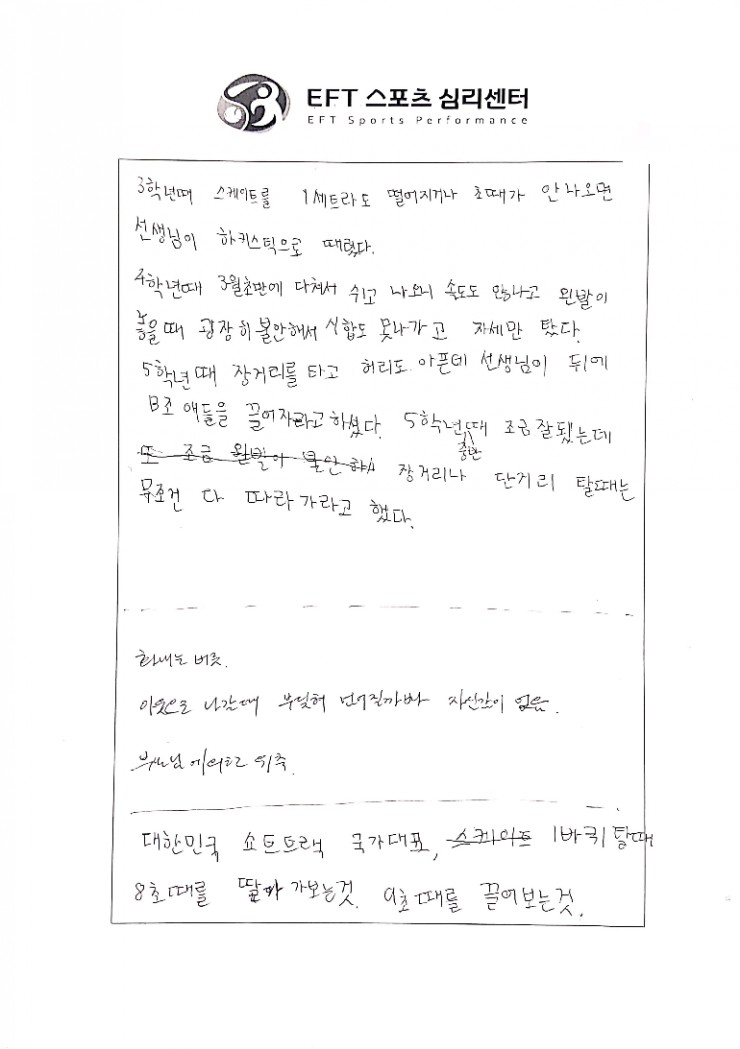 EFT 스포츠 심리센터
EFT Sports Performance
3학년때 스케이트를 1세트라도 떨어지거나 초때가 안나오면
선생님이 하키스틱으로 때렸다.
4학년때 3월초반에 다쳐서 쉬고 나오니 속도도 안나고 왼발이
놓을때 굉장히 불안해서 시합도 못나가고 자세만 탔다.
5학년때 장거리를 타고 허리도 아픈데 선생님이 뒤에
B조 애들을 끌어자라고하셨다. 5학년때 조금잘됐는데
중반
또 조금 왼발이 불안해 장거리나 단거리 탈때는
무조건 다 따라가라고 했다.
화내는 버릇.
아웃으로 나갈때 부딪혀 넘어질까봐 자신감이 없음.
부모님 위축
대한민국 쇼트트랙 국가대표, 스케이트 1바퀴탈때
8초때를 딸아가보는것. 9초때를 끌어보는것.